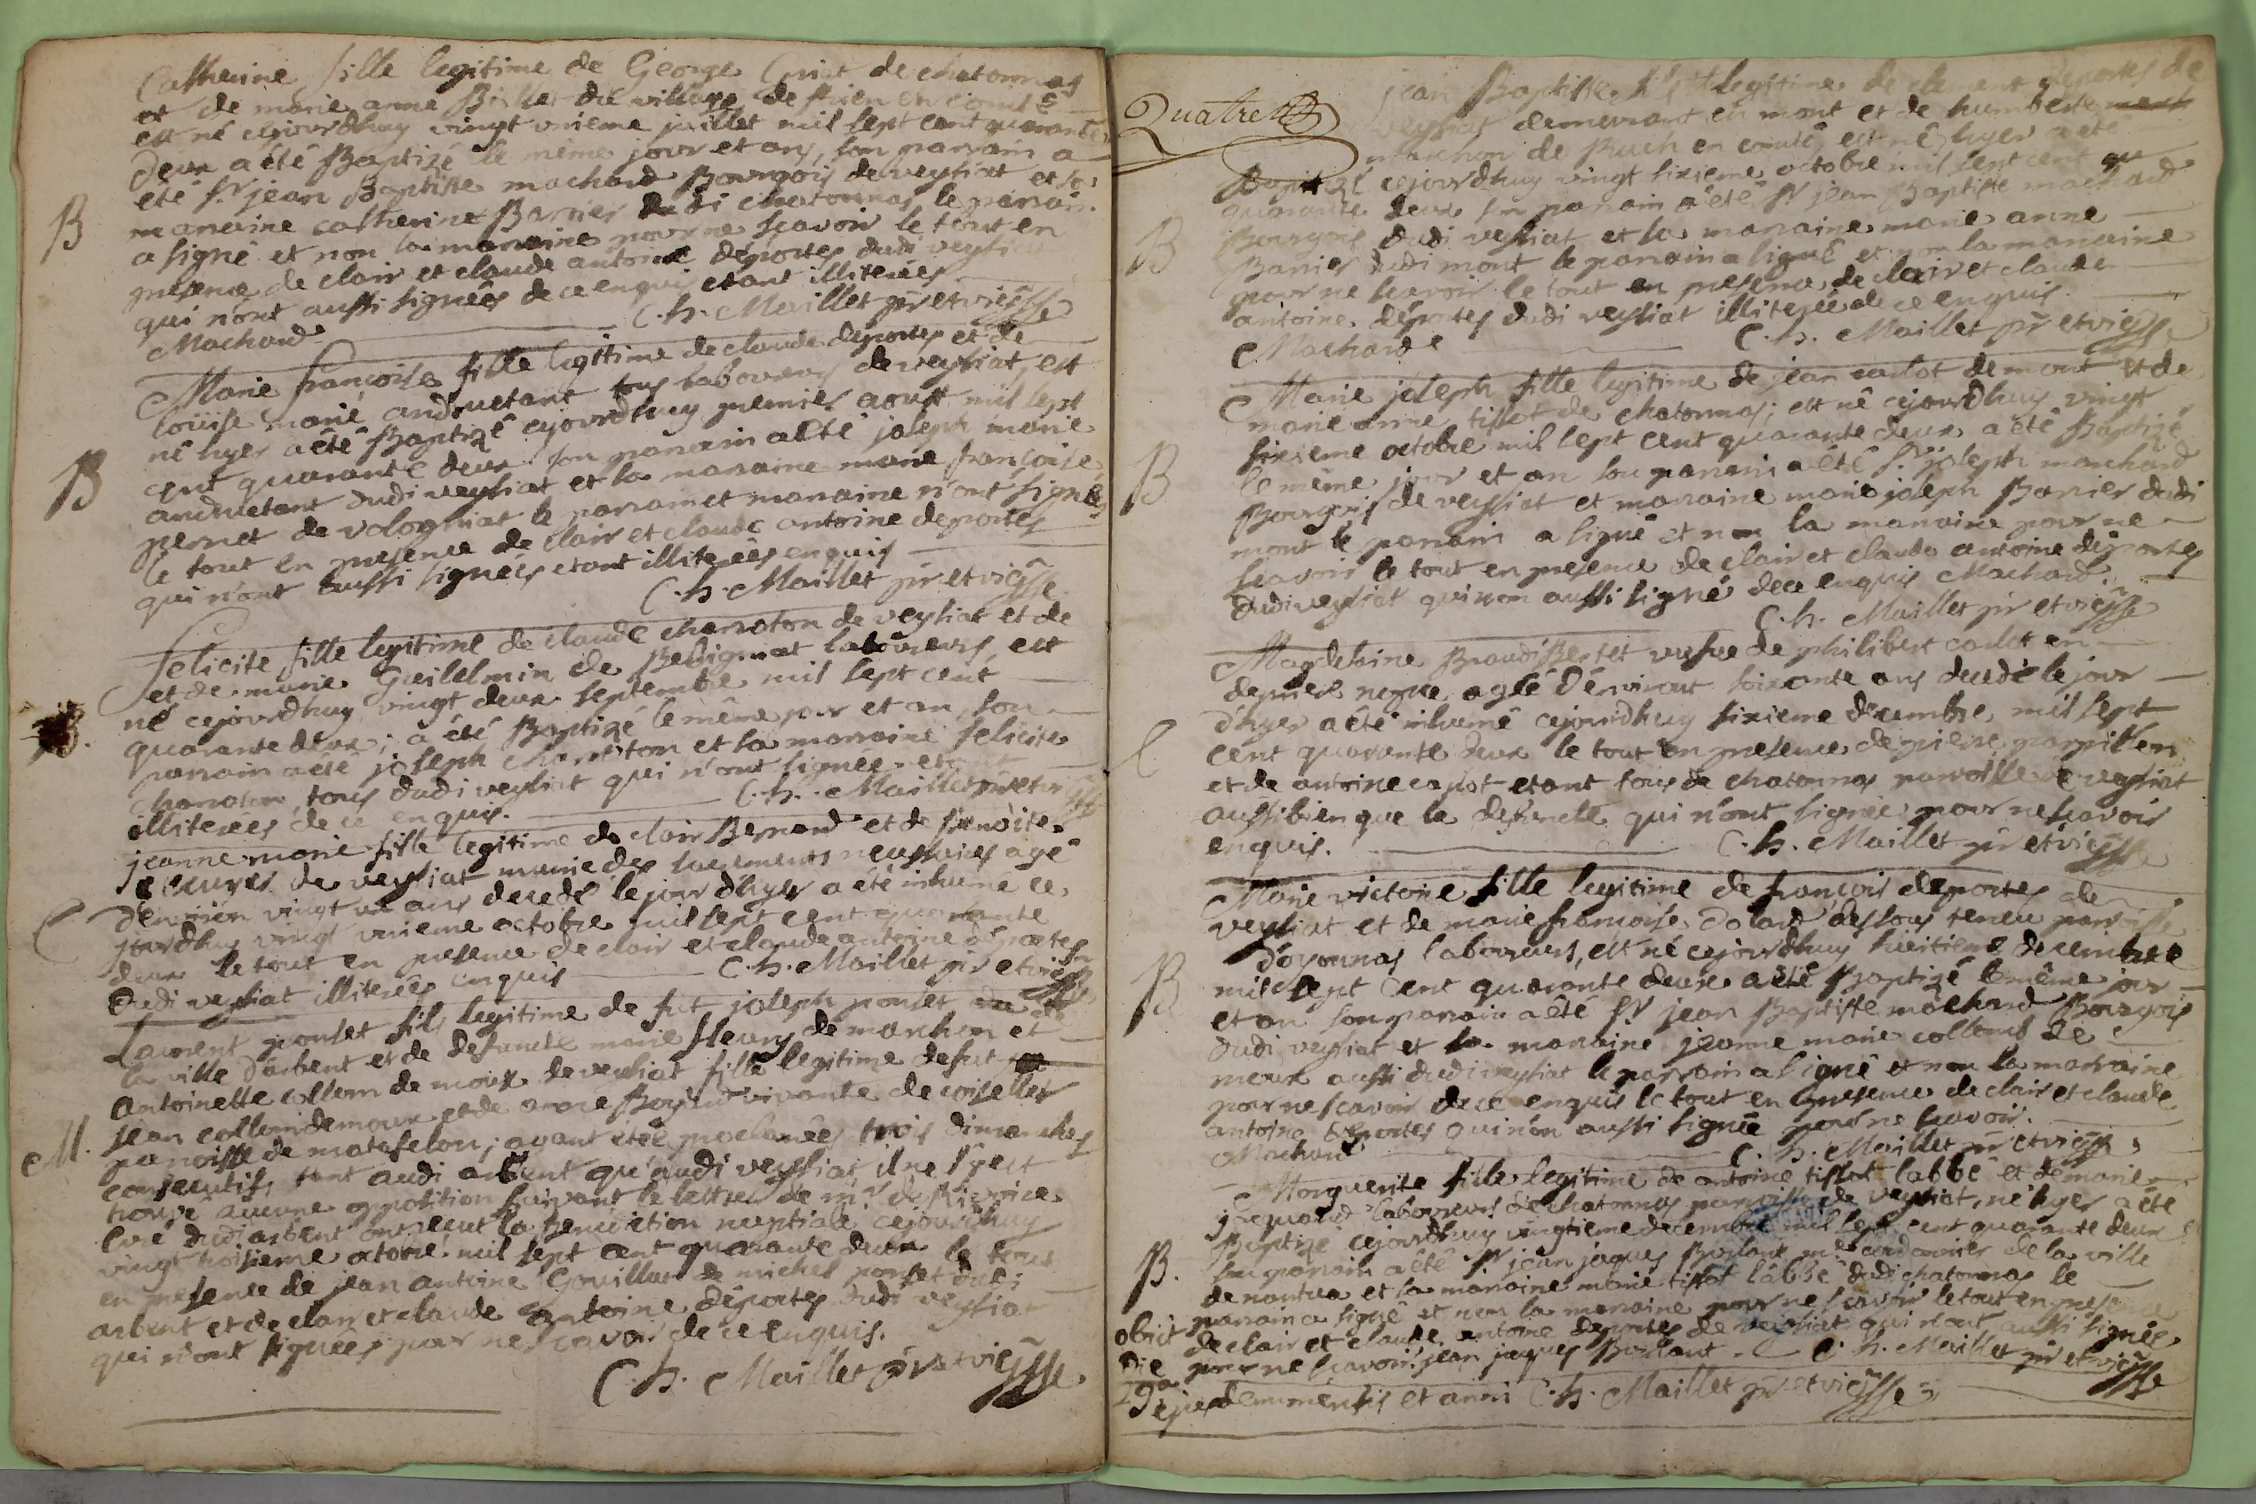 Catherine fille legitime de George Criat de chatonnas
et de marie anne Billet du village de thien en comté
est né cejourdhuy vingt unieme juillet mil sept cent quarante
deux a été Baptizé le même jour et an, son parrain a
été Sr jean Baptiste machard Bourgois de veysiat et sa
B
maraine catherine Barrier du di chatonnas, le parrain
a signé et non la maraine pour ne scavoir le tout en
presence de clair et claude antoine déportes dudi veysiat
qui n'ont aussi signées de ce enquis etant illiterées
Machard C. h. Maillet ptr et vic
Marie françoise fille legitime de claude deportes et de
loüise marie andruetant tous laboureurs de veysiat, est
né hyer a été Baptizé cejourdhuy premier aoust mil sept
B
cent quarante deux son parrain a été joseph marie
andruetant dudi veysiat et la maraine marie françoise
pernet de volognat le parrain et maraine n'ont signé
le tout en presence de clair et claude antoine deportes
qui n'ont aussi signées etant illiterées enquis
C. h. Maillet ptr et vic
Felicite fille legitime de claude charoton de veysiat et de
et de marie Guilelmin de Bellignat laboureurs, est
né cejourdhuy vingt deux septembre mil sept cent
quarante deux; a été Baptizé le même jour et an, son
parrain a été joseph charoton et la maraine felicite
charoton, tous dudi veysiat qui n'ont signée etant
illiterées de ce enquis. C. h. Maillet ptr et vic
jeanne marie fille legitime de clair Bernard et de Benoite
de veysiat munie des sacrements necessaires agé
C
d'environ vingt un ans decedé le jour d'hyer a été inhumé ce
jourdhuy vingt unieme octobre mil sept cent quarante
deux le tout en presence de clair et claude antoine déportes
dudi veysiat illiterées enquis C. h. Maillet ptr et vic
Laurent ponset fils legitime de fut joseph ponset de
la ville d'arbent et de defuncte marie fleury de marchon et
antoinette collom de moux de veysiat fille legitime de fut
jean collom de moux et de anne vivante de coiselet
M.
paroisse de matafelon; ayant étéé proclamées trois dimanches
consecutifs tant audi arbent qu'audi veysiat il ne s'est
trouvé aucune opposition suivant le lettres de mr de
curé dudi arbent ont receut la Benediction nuptiale cejourdhuy
vingt troisieme octobre mil sept cent quarante deux le tout
en presence de jean antoine Gouillan de michel ponset dudi
arbent et de clair et claude antoine déportes dudi veysiat
qui n'ont signées pour ne scavoir de ce enquis.
C. h. Maillet ptr et vic
Quatre
jean Baptiste fils legitime de clement deportes de
veysiat demeurant en mont et de humberte
marchon de Buch en comté, est né hyer a été
Baptizé cejourdhuy vingt sixieme octobre mil sept cent
quarante deux son parrain a été Sr jean Baptiste machard
B
Bourgois dudi veysiat et la maraine marie anne
Banier dudi mont le parrain a signé et non la maraine
pour ne scavoir le tout en presence de clair et claude
antoine déportes dudi veysiat illiterée de ce enquis.
Machard C. h. Maillet ptr et vic
Marie joseph fille legitime de jean carlot de mont et de
marie anne tissot de chatonnas; est né cejourdhuy vingt
sixieme octobre mil sept cent quarante deux a été Baptizé
B
le même jour et an son parrain a été Sr joseph marchard
Bourgois de veysiat et maraine marie joseph Banier dudi
mont le parrain a signé et non la maraine pour ne
scavoir le tout en presence de clair et claude antoine déportes
dudi veysiat qui non aussi signé de ce enquis Machard
C. h. Maillet ptr et vic
Magdelaine vefve de philibert carlot en
dernier agéé d'environt soixante ans decedé le jour
d'hyer a été inhumé cejourdhuy sixieme decembre mil sept
C
cent quarante deux le tout en presence de pierre
et de antoine etant tous de chatonnas parroisse de veysiat
aussi bien que la defuncte qui n'ont signée pour ne scavoir
enquis. C. h. Maillet ptr et vic
Marie victoire fille legitime de françois deportes de
veysiat et de marie francoise dolard dessous tenue parroisse
d'oyonnas laboureurs, est né cejourdhuy huitieme decembre
B
mil sept cent quarante deux a été Baptizé le même jour
et an son parrain a été Sr jean Baptiste machard Bourgois
dudi veysiat et la maraine jeanne marie collomb de
moux aussi dudi veysiat le parrain a signé et non la marraine
pour ne scavoir de ce enquis le tout en presence de clair et claude
antoine deportes qui n'on aussi signée pour ne scavoir.
Machard C. h. Maillet ptr et vic
Marguerite fille legitime de antoine tissot labbé et de marie
jacquand laboureurs de chatonnas parroisse de veysiat, né hyer a été
Baptizé cejourdhuy vingtieme decembre mil sept cent quarante deux
B.
son parrain a été Sr jean jaques Bustant me cordonnier de la ville
de nantua et la maraine marie tissot labbé dudi chatonnas le
parrain a signé et non la maraine pour ne scavoir le tout en presence
obiit
de clair et claude antoine deportes de veysiat qui n'ont aussi signée
die
pour ne scavoir. jean jaques Bustant C. h. Maillet ptr et vic
29a
ejusdem mensis et anni C. h. Maillet ptr et vic